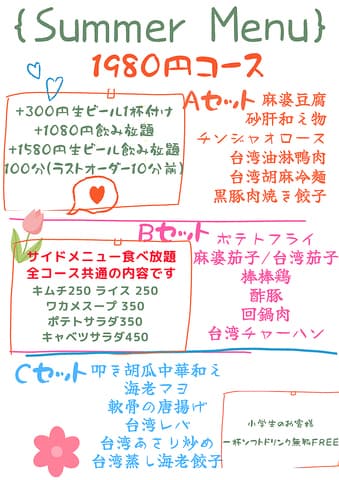 {Summer Menu}
1980円コース
+300円生ビール1杯付け
+1080円飲み放題
+1580円生ビール飲み放題
100分(ラストオーダー10分前)
Aセット 麻婆豆腐
砂肝和え物
チンジャオロース
台湾油淋鴨肉
台湾胡麻冷麺
黒豚肉焼き餃子
Bセット ポテトフライ
麻婆茄子/台湾茄子
棒棒鶏
酢豚
回鍋肉
台湾チャーハン
サイドメニュー食べ放題
全コース共通の内容です
キムチ250 ライス 250
ワカメスープ 350
ポテトサラダ350
キャベツサラダ450
Cセット 叩き胡瓜中華和え
海老マヨ
軟骨の唐揚げ
台湾レバ
台湾あさり炒め
台湾蒸し海老餃子
小学生のお客様
一杯ソフトドリンク無料FREE